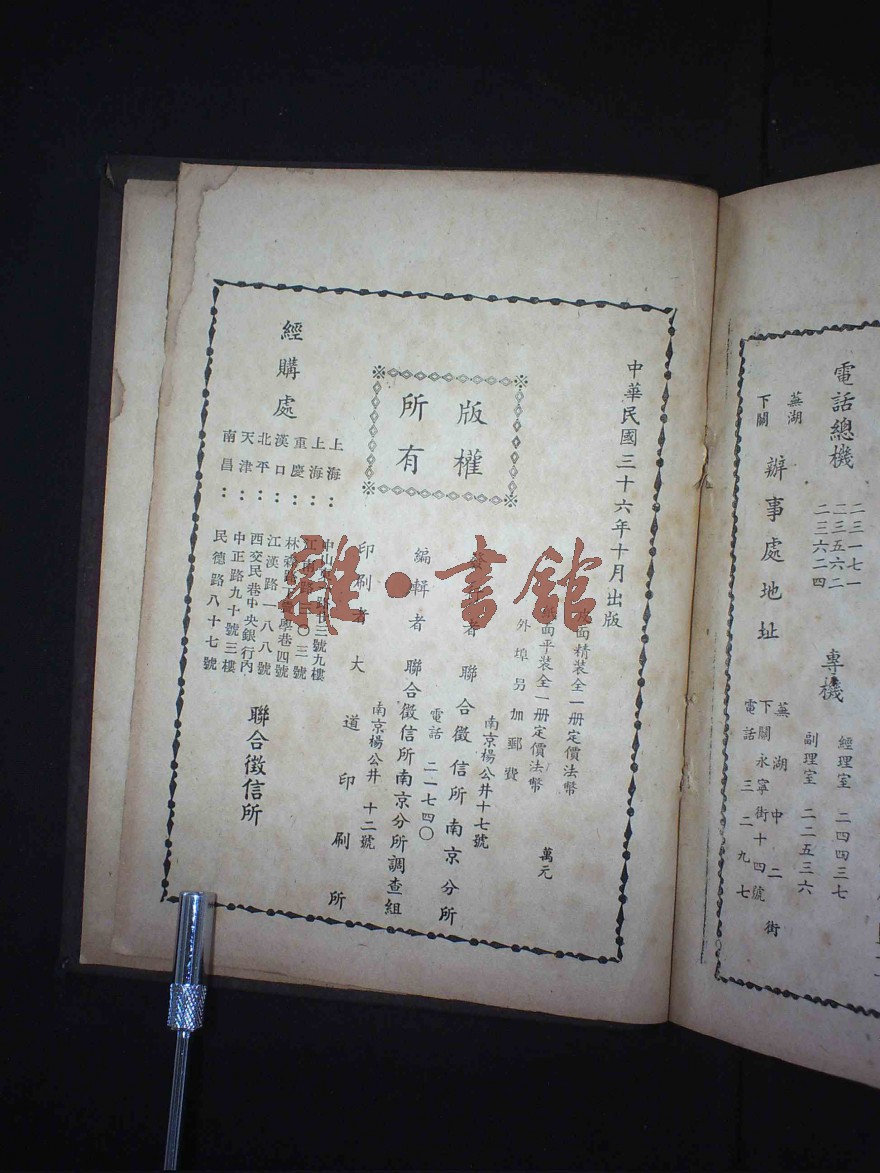 中華民國三十六年十月出版
面精裝全一册定價法幣
紙面平装全一册定價法幣
萬元
外埠另加郵費
版權
所有
者 聯合徵信所南京分所
南京楊公井十七號
電話 二一七四〇
編輯者 聯合徵信所南京分所調查組
印刷者 大道印刷所
南京楊公井 十二號
經購處
上海：
上海：
重慶：
漢口：
北平：
天津：
南昌：
中山 號九樓
三號
林森路 學巷四號
江漢路一八八號
西交民巷中央銀行內
中正路九十號三樓
民德路八十七號
聯合徵信所
雜·書館
電話總機
二三一七一
二三五六二
二三六二四
專機
經理室 二四四三七
副理室 二二五三六
蕪湖
下關
辦事處地址
蕪湖中二街
下關永寧街十四號
電話 三二九七